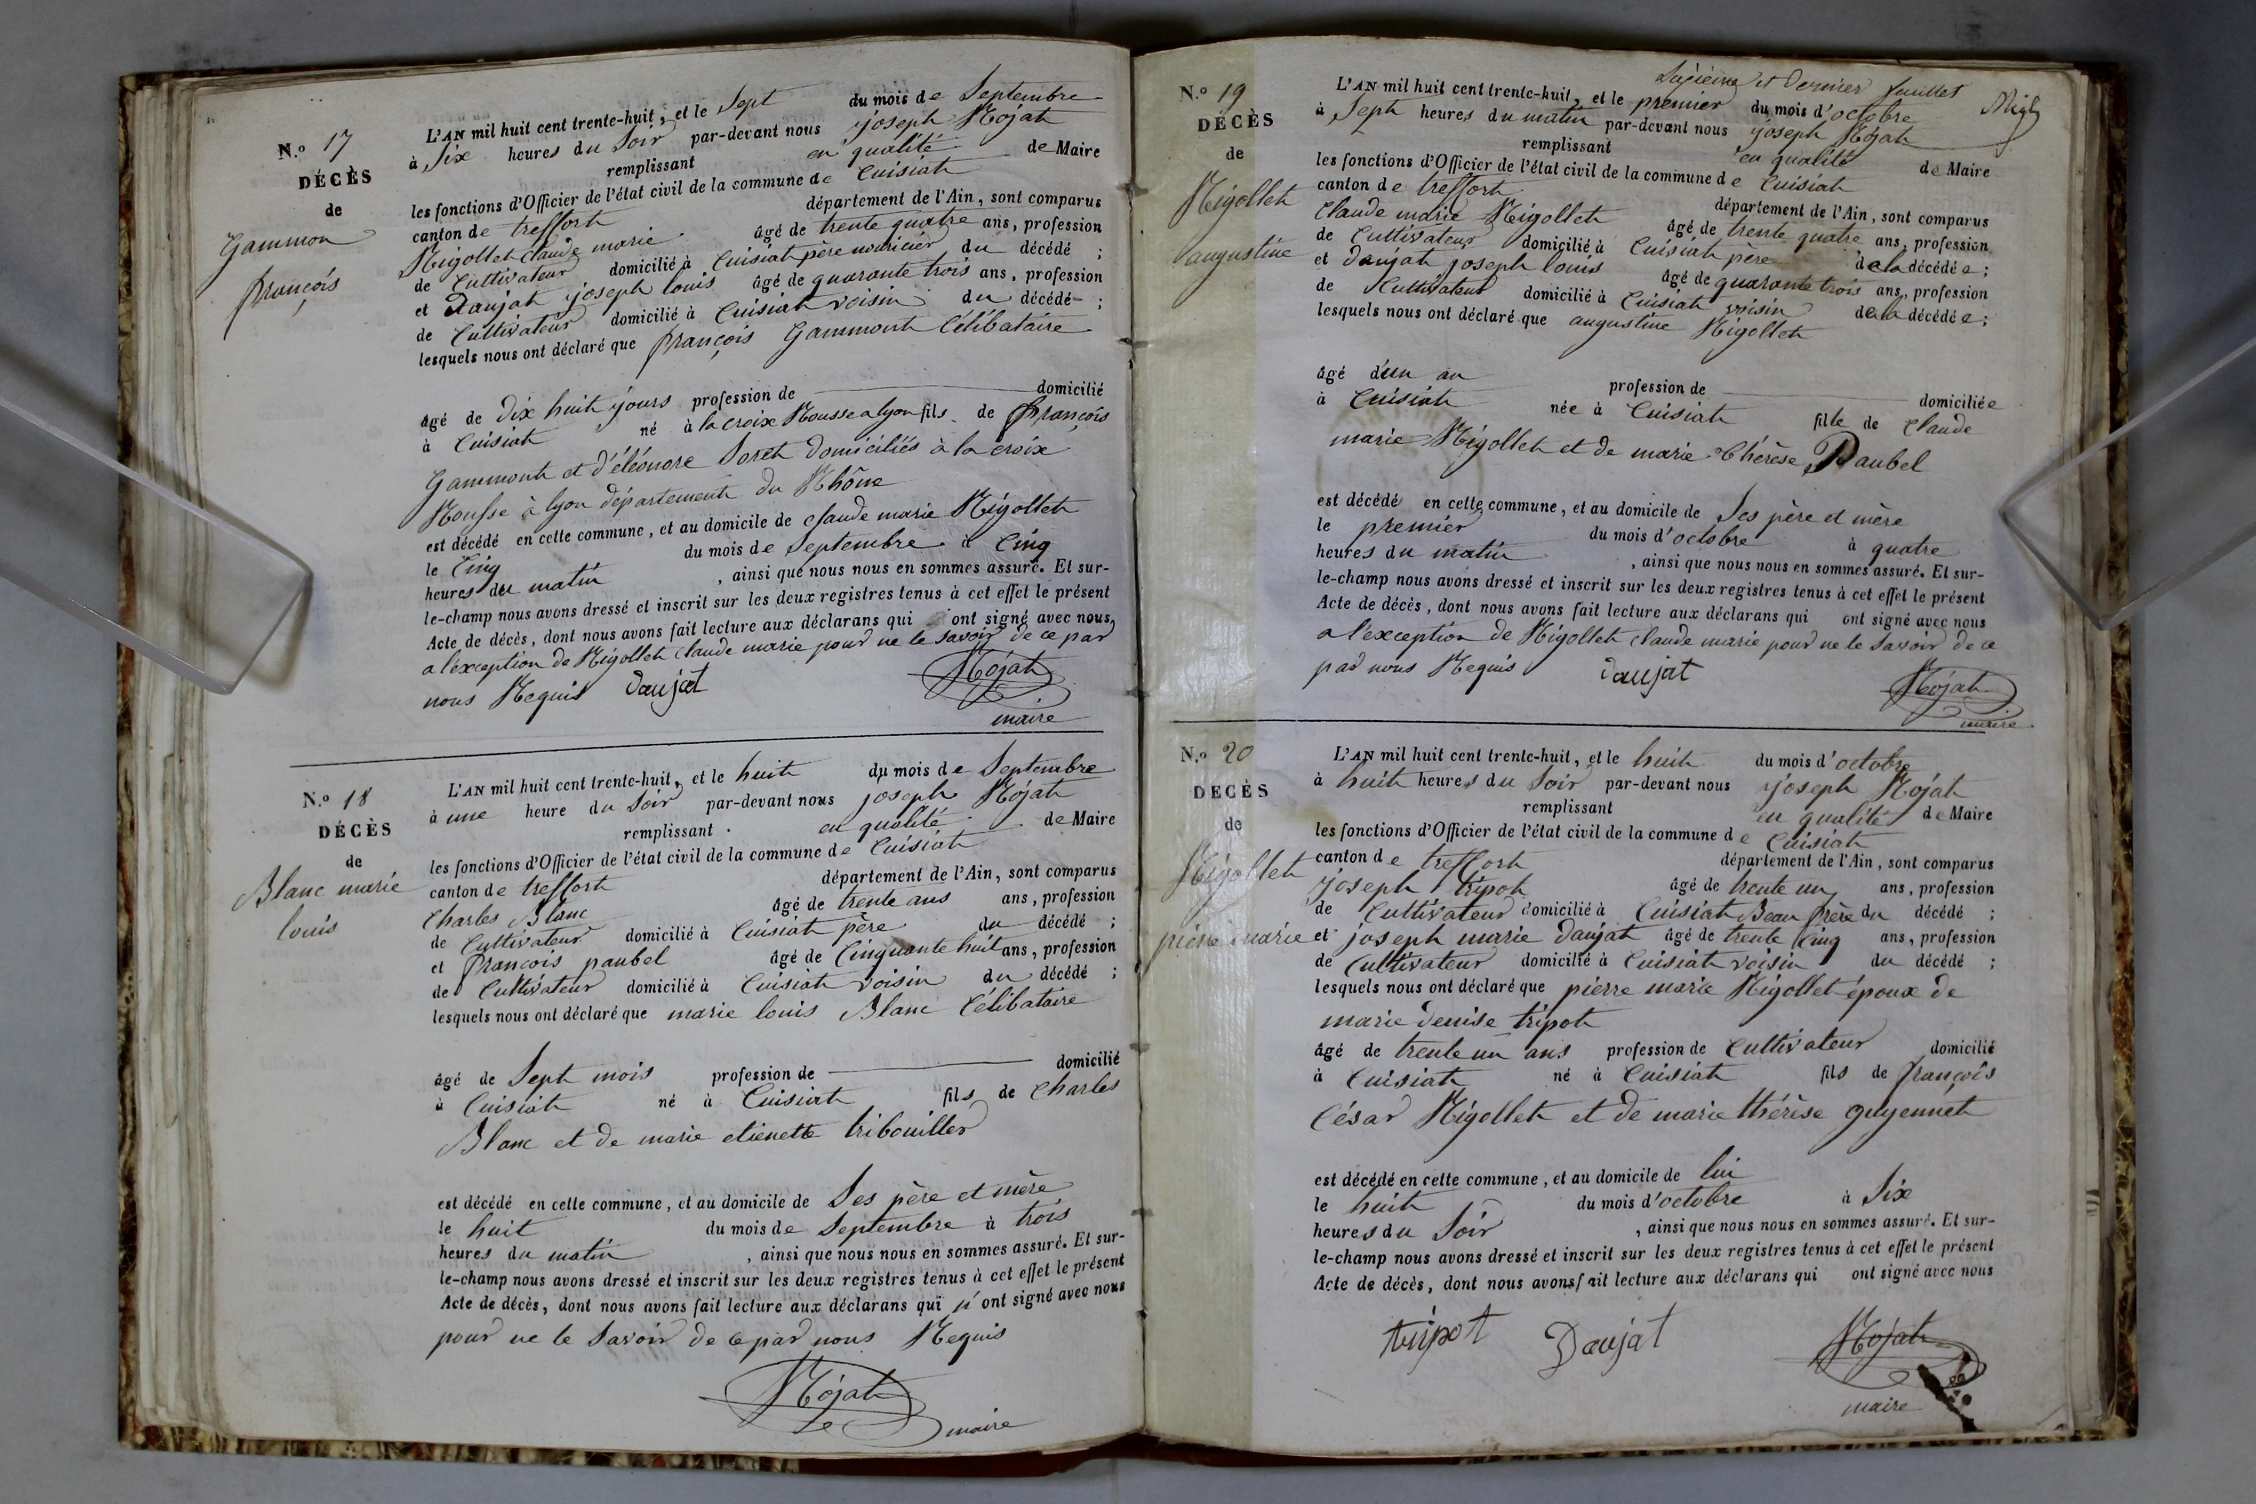 N.o 17
DÉCÈS
de
Gammon
françois
L'AN mil huit cent trente-huit, et le Sept du mois de Septembre
à Six heures du Soir par-devant nous joseph Rojat
remplissant en qualité de Maire
les fonctions d'Officier de l'état civil de la commune de Cuisiat
canton de treffort département de l'Ain, sont comparus
Rigollet Claude marie âgé de trente quatre ans, profession
de Cultivateur domicilié à Cuisiat père nouricier du décédé ;
et Daujat joseph louis âgé de quarante trois ans, profession
de Cultivateur domicilié à Cuisiat voisin du décédé ;
lesquels nous ont déclaré que françois Gammont Célibataire
âgé de dix huit jours profession de domicilié
à Cuisiat né à la croix Rousse a lyon fils de françois
Gammont et d'éléonore Soret domiciliés à la croix
Rousse à lyon département du Rhône
est décédé en cette commune, et au domicile de Claude marie Rigollet
le Cinq du mois de Septembre à Cinq
heures du matin , ainsi que nous nous en sommes assuré. Et sur-
le-champ nous avons dressé et inscrit sur les deux registres tenus à cet effet le présent
Acte de décès, dont nous avons fait lecture aux déclarans qui ont signé avec nous,
a l'exception de Rigollet Claude marie pour ne le savoir de ce par
nous Requis daujat Rojat
maire
N.o 18
DÉCÈS
de
Blanc marie
louis
L'AN mil huit cent trente-huit, et le huit du mois de Septembre
à une heure du Soir par-devant nous joseph Rojat
remplissant en qualité de Maire
les fonctions d'Officier de l'état civil de la commune de Cuisiat
canton de treffort département de l'Ain, sont comparus
Charles Blanc âgé de trente ans ans, profession
de Cultivateur domicilié à Cuisiat père du décédé ;
et françois paubel âgé de Cinquante huit ans, profession
de Cultivateur domicilié à Cuisiat voisin du décédé ;
lesquels nous ont déclaré que marie louis Blanc Célibataire
âgé de Sept mois profession de domicilié
à Cuisiat né à Cuisiat fils de Charles
Blanc et de marie etienette tribouiller
est décédé en cette commune, et au domicile de Ses père et mère
le huit du mois de Septembre à trois
heures du matin , ainsi que nous nous en sommes assuré. Et sur-
le-champ nous avons dressé et inscrit sur les deux registres tenus à cet effet le présent
Acte de décès, dont nous avons fait lecture aux déclarans qui n'ont signé avec nous
pour ne le Savoir de ce par nous Requis
Rojat
maire
et Dernier feuillet
N.o 19
DÉCÈS
de
Rigollet
augustine
L'AN mil huit cent trente-huit, et le premier du mois d'octobre
à Sept heures du matin par-devant nous joseph Rojat
remplissant en qualité de Maire
les fonctions d'Officier de l'état civil de la commune de Cuisiat
canton de treffort département de l'Ain, sont comparus
Claude marie Rigollet âgé de trente quatre ans, profession
de Cultivateur domicilié à Cuisiat père de la décédée ;
et daujat joseph louis âgé de quarante trois ans, profession
de Cultivateur domicilié à Cuisiat voisin de la décédée ;
lesquels nous ont déclaré que augustine Rigollet
âgé d'un an profession de domiciliée
à Cuisiat née à Cuisiat fille de Claude
marie Rigollet et de marie thérèse Paubel
est décédé en cette commune, et au domicile de Ses père et mère
le premier du mois d'octobre à quatre
heures du matin , ainsi que nous nous en sommes assuré. Et sur-
le-champ nous avons dressé et inscrit sur les deux registres tenus à cet effet le présent
Acte de décès, dont nous avons fait lecture aux déclarans qui ont signé avec nous
a l'exception de Rigollet Claude marie pour ne le Savoir de ce
par nous Requis daujat Rojat
maire
N.o 20
DÉCÈS
de
Rigollet
pierre marie
L'AN mil huit cent trente-huit, et le huit du mois d'octobre
à huit heures du Soir par-devant nous joseph Rojat
remplissant en qualité de Maire
les fonctions d'Officier de l'état civil de la commune de Cuisiat
canton de treffort département de l'Ain, sont comparus
joseph tripot âgé de trente un ans, profession
de Cultivateur domicilié à Cuisiat Beau frère du décédé ;
et joseph marie daujat âgé de trente Cinq ans, profession
de Cultivateur domicilié à Cuisiat voisin du décédé ;
lesquels nous ont déclaré que pierre marie Rigollet époux de
marie denise tripot
âgé de trente un ans profession de Cultivateur domicilié
à Cuisiat né à Cuisiat fils de françois
César Rigollet et de marie thérèse guyennet
est décédé en cette commune, et au domicile de lui
le huit du mois d'octobre à Six
heures du Soir , ainsi que nous nous en sommes assuré. Et sur-
le-champ nous avons dressé et inscrit sur les deux registres tenus à cet effet le présent
Acte de décès, dont nous avons fait lecture aux déclarans qui ont signé avec nous
tripot Daujat Rojat
maire